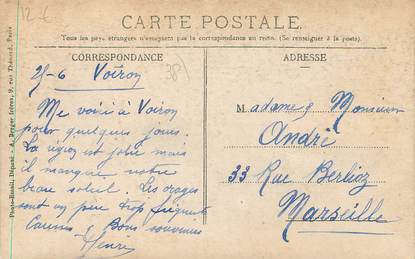 12 €
CARTE POSTALE
Tous les pays étrangers n'acceptent pas la correspondance au recto. (Se renseigner à la poste).
CORRESPONDANCE
ADRESSE
25-6 Voiron
38
Me voici à Voiron
pour quelques jours.
La région est jolie mais
il manque notre
beau soleil. Les orages
sont un peu trop fréquents
Bons souvenirs
Henri
Madame & Monsieur
André
33 Rue Berlioz
Marseille